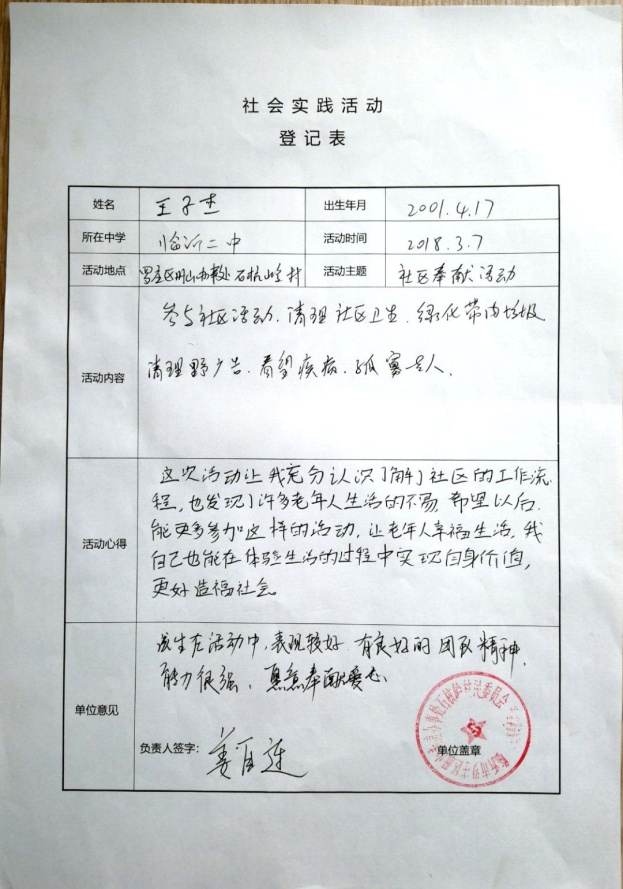 社会实践活动
登记表
姓名 王子杰 出生年月 2001.4.17
所在中学 临沂二中 活动时间 2018.3.7
活动地点 罗庄区 办事处 石杭岭村 活动主题 社区奉献活动
活动内容
参与社区活动、清理社区卫生、绿化带内垃圾
清理野广告、看望疾病、孤寡老人.
活动心得
这次活动让我充分认识了解了社区的工作流
程,也发现了许多老年人生活的不易,希望以后
能更多参加这样的活动,让老年人幸福生活,我
自己也能在体验生活的过程中实现自身价值,
更好造福社会
单位意见
该生在活动中,表现较好,有良好的团队精神,
能力很强、 奉献爱心
负责人签字: 单位盖章